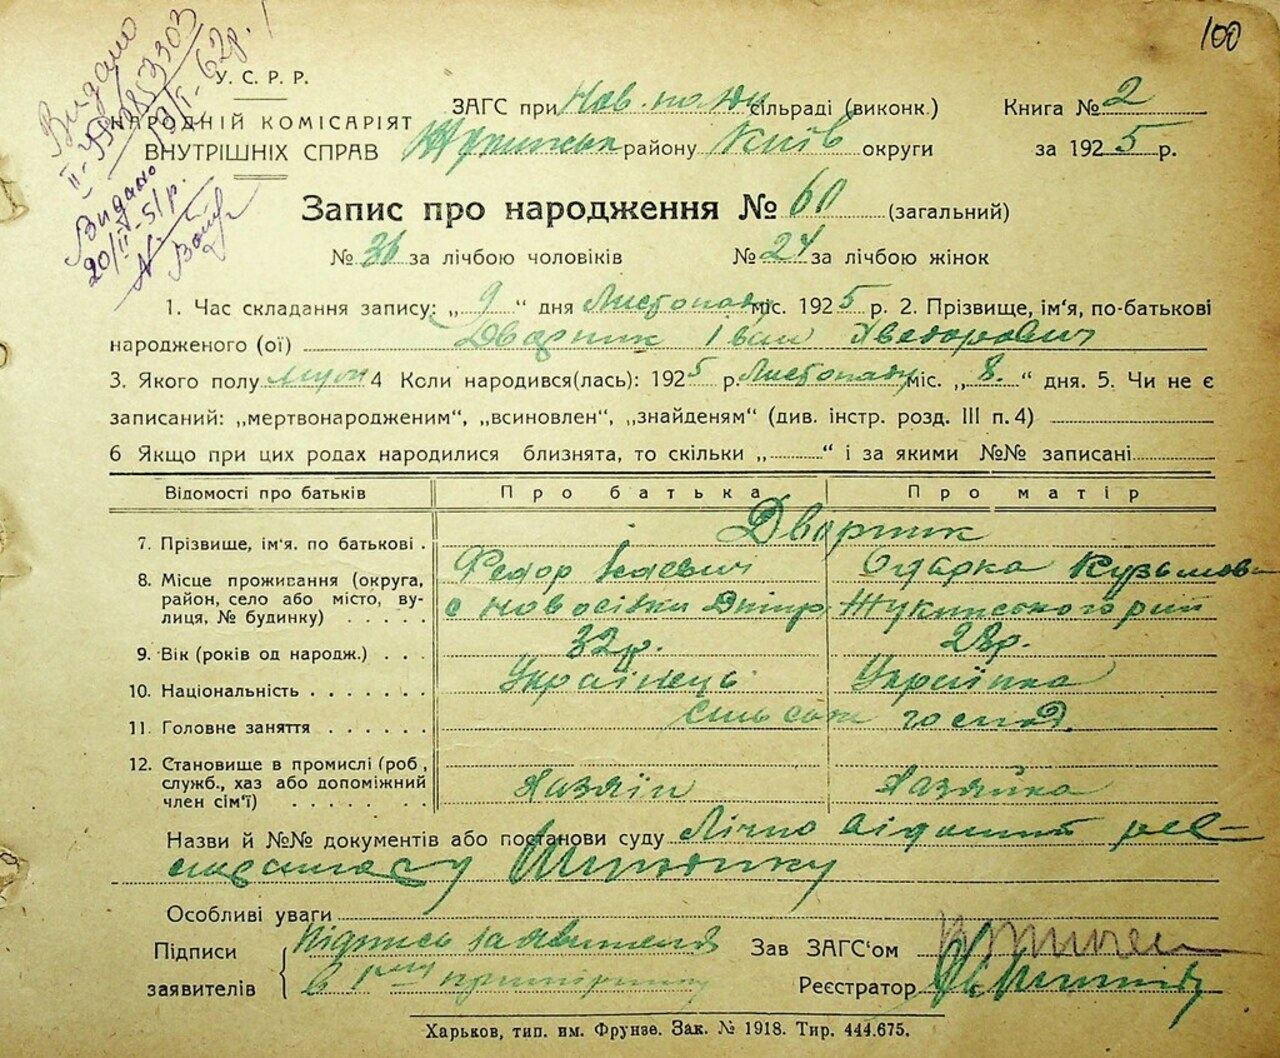 100
Видано
II-ЯЮ 2853303
19/I-62р.
Видано
20/II-51р.
У. С. Р. Р.
НАРОДНІЙ КОМІСАРІЯТ
ВНУТРІШНІХ СПРАВ
ЗАГС при сільраді (виконк.)
Книга № 2
району Київ округи
за 1925 р.
Запис про народження № 60 (загальний)
№ 36 за лічбою чоловіків № 24 за лічбою жінок
1. Час складання запису: „ 9 “ дня Листопаду міс. 1925 р. 2. Прізвище, ім‘я, по-батькові
народженого (ої) Дворник Іван Хведорович
3. Якого полу муж 4 Коли народився(лась): 1925 р. Листопаду міс. „ 8. “ дня. 5. Чи не є
записаний: „мертвонародженим“, „всиновлен“, „знайденям“ (див. інстр. розд. III п. 4)
6 Якщо при цих родах народилися близнята, то скільки „ “ і за якими №№ записані
Відомості про батьків Про батька Про матір
7. Прізвище, ім'я. по батькові . Дворник
Федор Одарка Кузьмовн
8. Місце проживання (округа,
район, село або місто, ву-
лиця, № будинку) . . . . . с Новосілки Дніпр. Жукинського рай
9. Вік (років од народж.) . . . 32р. 28р.
10. Національність . . . . . . . Українець Українка
11. Головне заняття . . . . . . Сільське господ.
12. Становище в промислі (роб.,
служб., хаз або допоміжний
член сім'ї) . . . . . . . Хазяїн Хазяйка
Назви й №№ документів або постанови суду Лічно відомий
Особливі уваги
Підписи
заявителів
Підпись заявителя
в 1му примірнику
Зав ЗАГС‘ом
Реєстратор
Харьков, тип. им. Фрунзе. Зак. № 1918. Тир. 444.675.